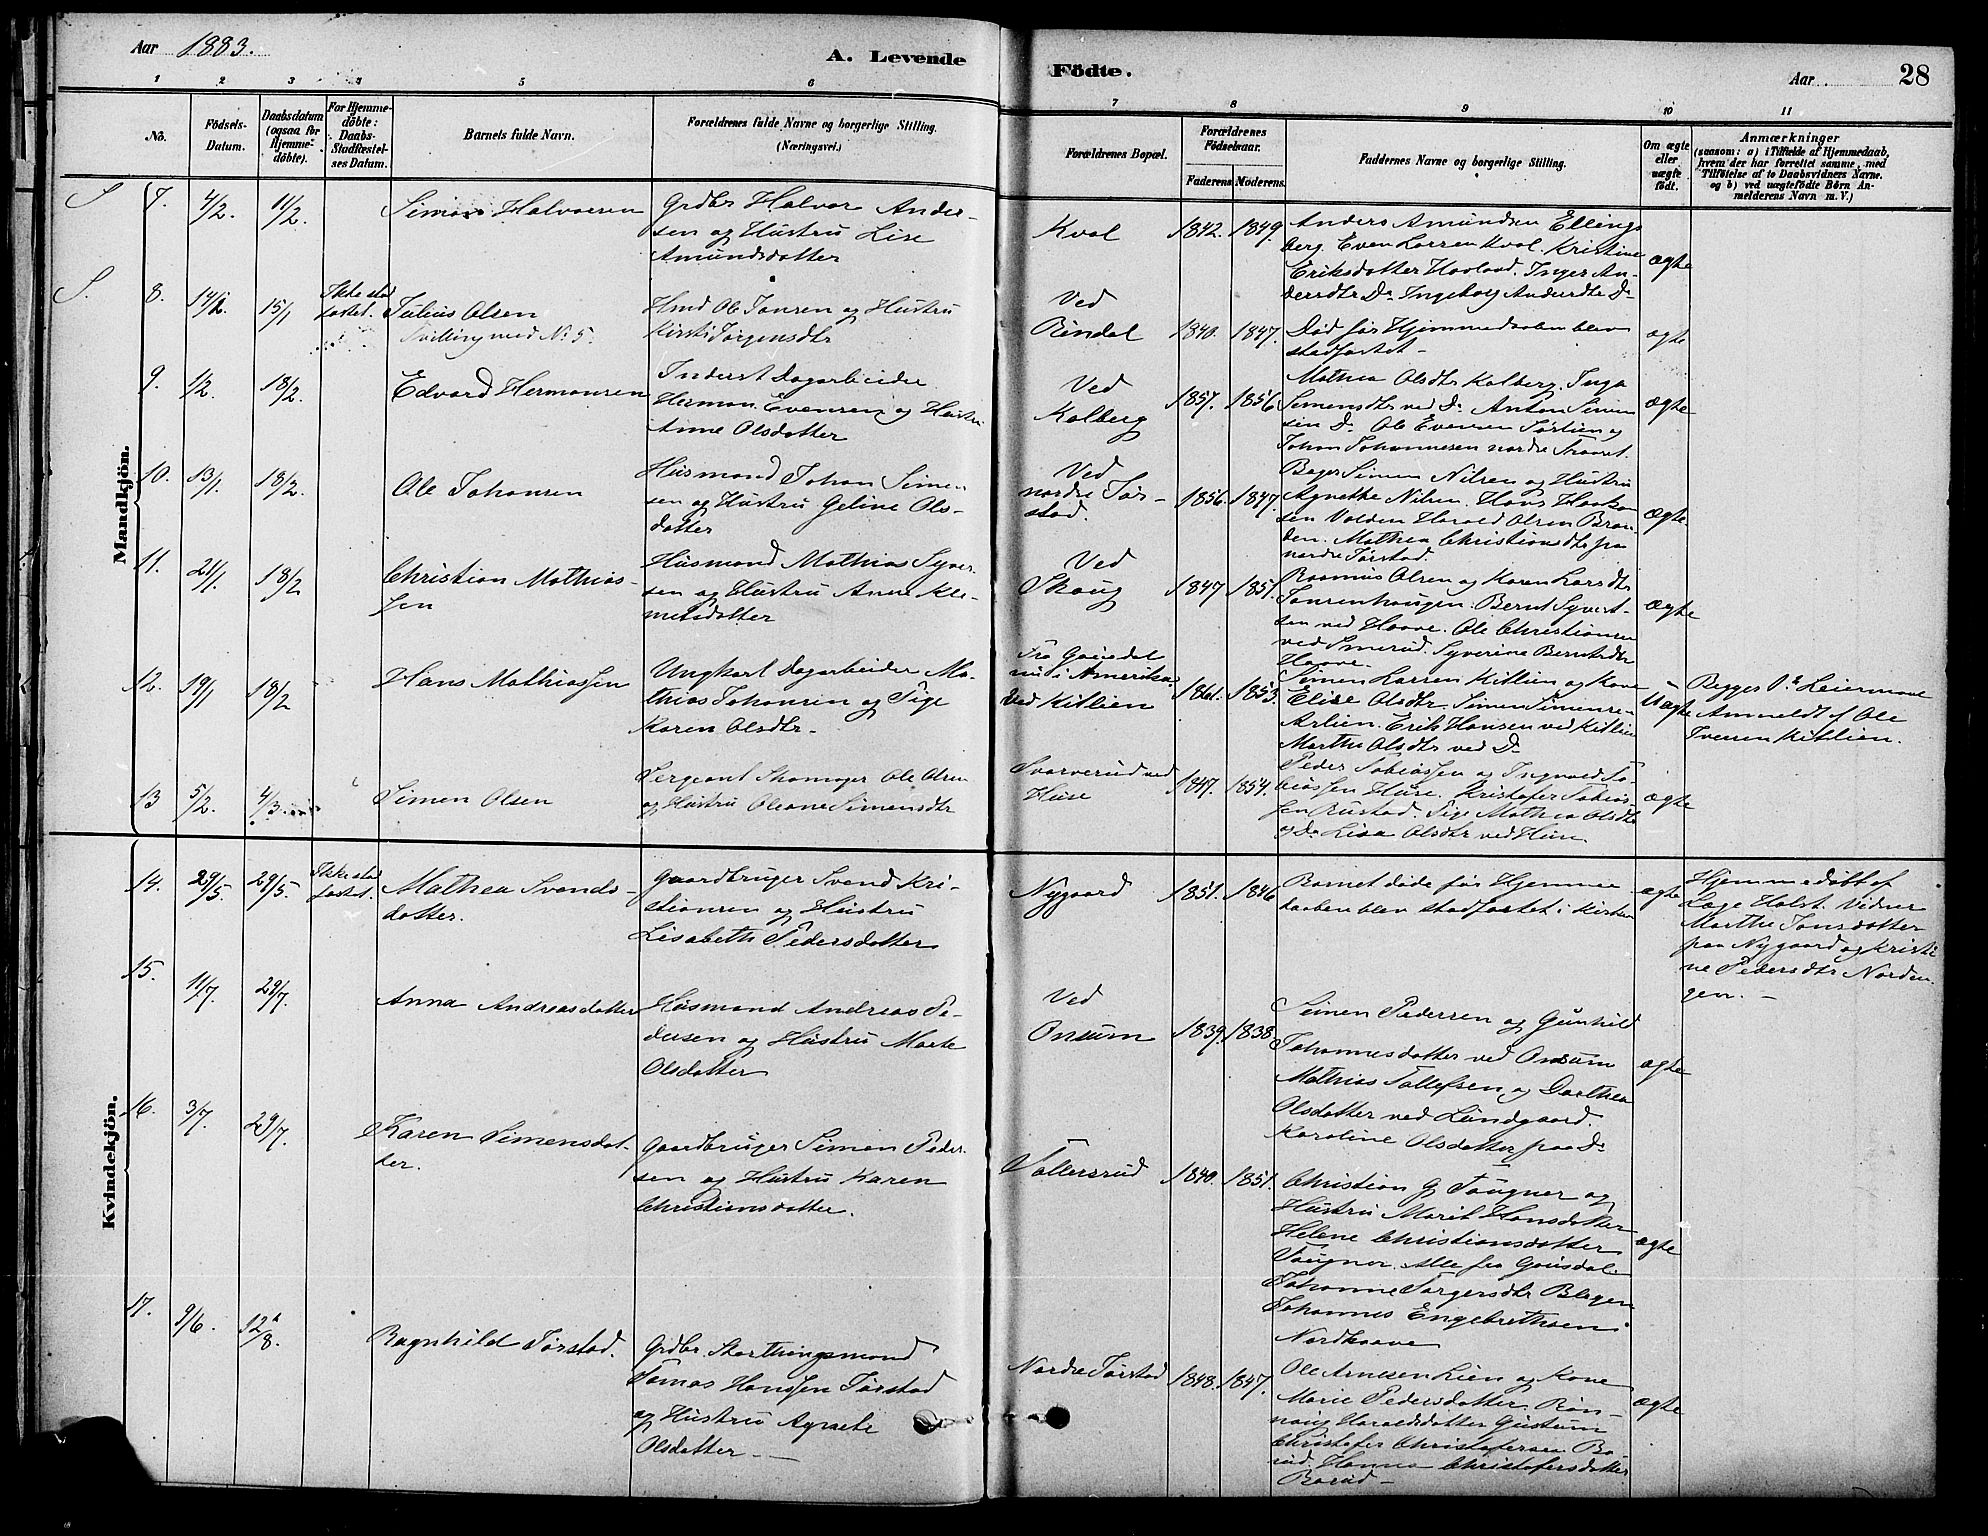 Aar 1883.
A. Levende
Födte.
Aar
28
1 2 3 4 5 6
7 8 9 10 11
No.
Födsels-
Datum.
Daabsdatum
(ogsaa for
Hjemme-
döbte).
For Hjemme-
döbte:
Daabs-
Stadfæstel-
ses Datum.
Barnets fulde Navn.
Forældrenes fulde Navne og borgerlige Stilling.
(Næringsvei.)
Forældrenes Bopæl.
Forældrenes
Födselsaar.
Faderens.
Moderens.
Faddernes Navne og borgerlige Stilling.
Om ægte
eller
uægte
födt.
Anmærkninger
(saasom: a) i Tilfælde af Hjemmedaab,
hvem der har forrettet samme, med
Tilföielse af to Daabsvidners Navne.
og b) ved uægtefödte Börn An-
melderens Navn m. V.)
Mandkjön.
S 7. 4/2. 11/2.
Simon Halvorsen
Grdbr Halvor Ander-
sen og Hustru Lise
Amundsdatter
Kval
1842. 1849.
Anders Amundsen Ellings
berg. Even Larsen Kval. Kristine
Eriksdatter Haaland. Inger An-
dersdtr Do Ingeborg Andersdtr Do
ægte
S. 8. 14/1. 15/1
Ikke stad
fæstet.
Julius Olsen
Tvilling med No 5.
Hmd Ole Jonsen og Hustru
Kirsti Jørgensdtr
Ved
Rindal
1840. 1847.
Død før Hjemmedaaben blev
stadfæstet -
ægte
9. 1/2. 18/2.
Edvard Hermansen
Inderst Dagarbeider
Herman Evensen og Hustru
Anne Olsdatter
Ved
Kalberg
1857. 1856
Mathea Olsdtr Kalberg. Inga
Simensdtr ved Do Anton Simen
sen Do Ole Evensen og
Johan Johannesen nordre
ægte
10. 13/1. 18/2.
Ole Johansen
Husmand Johan Simen
sen og Hustru Geline Ols-
datter
Ved
nordre Tør-
stad.
1856. 1847.
Bager Simen Nilsen og Hustru
Agnethe Nilsen. Hans Haakon
sen Volden Harald Olsen Bran
den. Mathea Christiansdtr paa
nordre Tørstad.
ægte
11. 21/1. 18/2
Christian Mathias-
sen
Husmand Mathias Syver-
sen og Hustru Anne Kle-
metsdatter
Ved
Skoug
1847 1851.
Rasmus Olsen og Karen Larsdtr
Jonsenhaugen. Bernt Syvert-
sen ved Haave. Ole Christiansen
ved Smerud. Syverine Berntsdtr
Haave.
ægte
12. 19/1 18/2
Hans Mathiassen
Ungkarl Dagarbeider Ma-
thias Johansen og Pige
Karen Olsdtr -
Fra Gausdal
nu i Amerika.
Ved Kitlien
1861. 1853.
Simen Larsen Kitlien og Kone
Elise Olsdtr. Simen Simensen
Aalien. Erik Hansen ved Kitlien
Marthe Olsdtr ved Do
Uægte
Begges 1e Leiermaal
Anmeldt af Ole
Iversen Kitlien.
13 5/2. 4/3.
Simen Olsen
Sergeant Skomager Ole Olsen
og Hustru Oleane Simensdtr
Svarverud ved
Huse
1847. 1854.
Peder Tobiassen og Ingvald To-
biassen Huse. Kristofer Tobias-
sen Rustad. Pige Mathea Olsdtr
og Do Lisa Olsdtr ved Huse
ægte
Kvindekjön.
14. 29/5. 29/5.
Ikke stad
fæstet.
Mathea Svends-
datter.
Gaardbruger Svend Kri-
stiansen og Hustru
Lisabeth Pedersdatter
Nygaard
1851. 1846
Barnet døde før Hjemme
daaben blev stadfæstet i Kirken
ægte
Hjemmedøbt af
Lage Holst. Vidner
Marthe Jonsdatter
paa Nygaard og Kristi
ne Pedersdtr Norden
gen. -
15. 11/7. 29/7.
Anna Andreasdatter
Husmand Andreas Pe-
dersen og Hustru Marte
Olsdatter
Ved
Onsum
1839. 1838.
Simen Pedersen og Gunhild
Johannesdatter ved Onsum
Mathias Tollefsen og Dorthea
Olsdatter ved Lundgaard.
Karoline Olsdatter paa Do
ægte
16. 3/7. 29/7.
Karen Simensdat-
ter.
Gaardbruger Simen Peder-
sen og Hustru Karen
Christiansdatter.
Tollersrud
1840. 1851.
Christian G Taugner og
Hustru Marit Hansdatter
Helene Christiansdatter
Taugner. Alle fra Gausdal.
Johanne Jørgensdtr Blegen
Johannes Engebrethsen
Nordhaave
ægte
17. 9/6. 12/8.
Ragnhild Tørstad.
Grdbr. Storthingsmand
Tomas Hanssen Tørstad
og Hustru Agnete
Olsdatter. -
Nordre Tørstad
1848. 1847.
Ole Arnesen Lien og Kone
Marie Pedersdatter. Røn-
naug Haraldsdatter Gustum
Christofer Christofersen Bø-
rud. Hanna Christofersdatter
Børud -
ægte